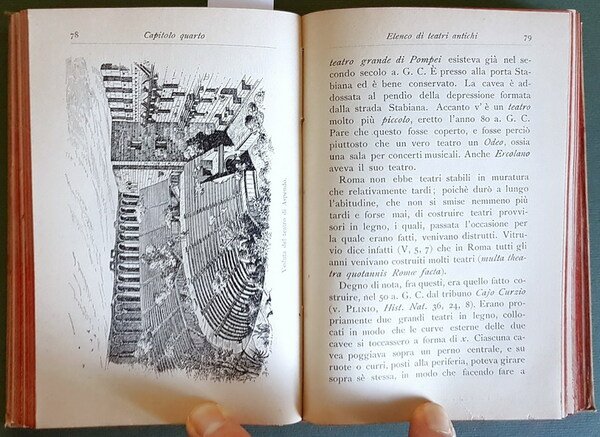 78
Capitolo quarto
Veduta del teatro di Aspendo
Elenco di teatri antichi
79
teatro grande di Pompei esisteva già nel se-
condo secolo a. G. C. È presso alla porta Sta-
biana ed è bene conservato. La cavea è ad-
dossata al pendio della depressione formata
dalla strada Stabiana. Accanto v' è un teatro
molto più piccolo, eretto l'anno 80 a. G. C.
Pare che questo fosse coperto, e fosse perciò
piuttosto che un vero teatro un Odeo, ossia
una sala per concerti musicali. Anche Ercolano
aveva il suo teatro.
Roma non ebbe teatri stabili in muratura
che relativamente tardi; poichè durò a lungo
l'abitudine, che non si smise nemmeno più
tardi e forse mai, di costruire teatri provvi-
sori in legno, i quali, passata l'occasione per
la quale erano fatti, venivano distrutti. Vitru-
vio dice infatti (V, 5, 7) che in Roma tutti gli
anni venivano costruiti molti teatri (multa thea-
tra quotannis Romæ facta).
Degno di nota, fra questi, era quello fatto co-
struire, nel 50 a. G. C. dal tribuno Cajo Curzio
(v. PLINIO, Hist. Nat. 36, 24, 8). Erano pro-
priamente due grandi teatri in legno, collo-
cati in modo che le curve esterne delle due
cavee si toccassero a forma di x. Ciascuna ca-
vea poggiava sopra un perno centrale, e su
ruote o curri, posti alla periferia, poteva girare
sopra sè stessa, in modo che facendo fare a